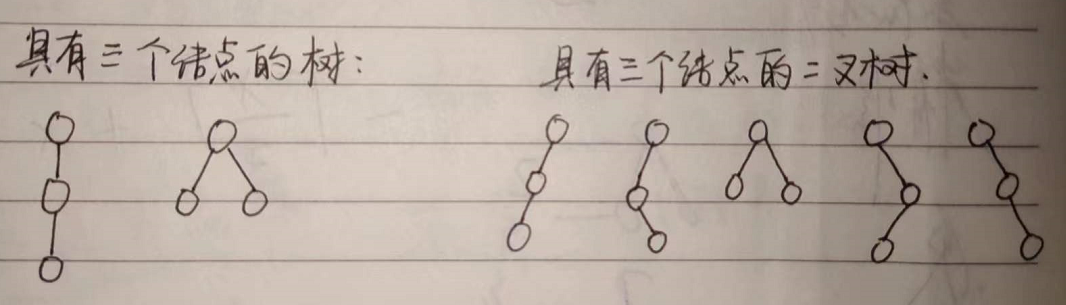 具有三个结点的树：
具有三个结点的二叉树.